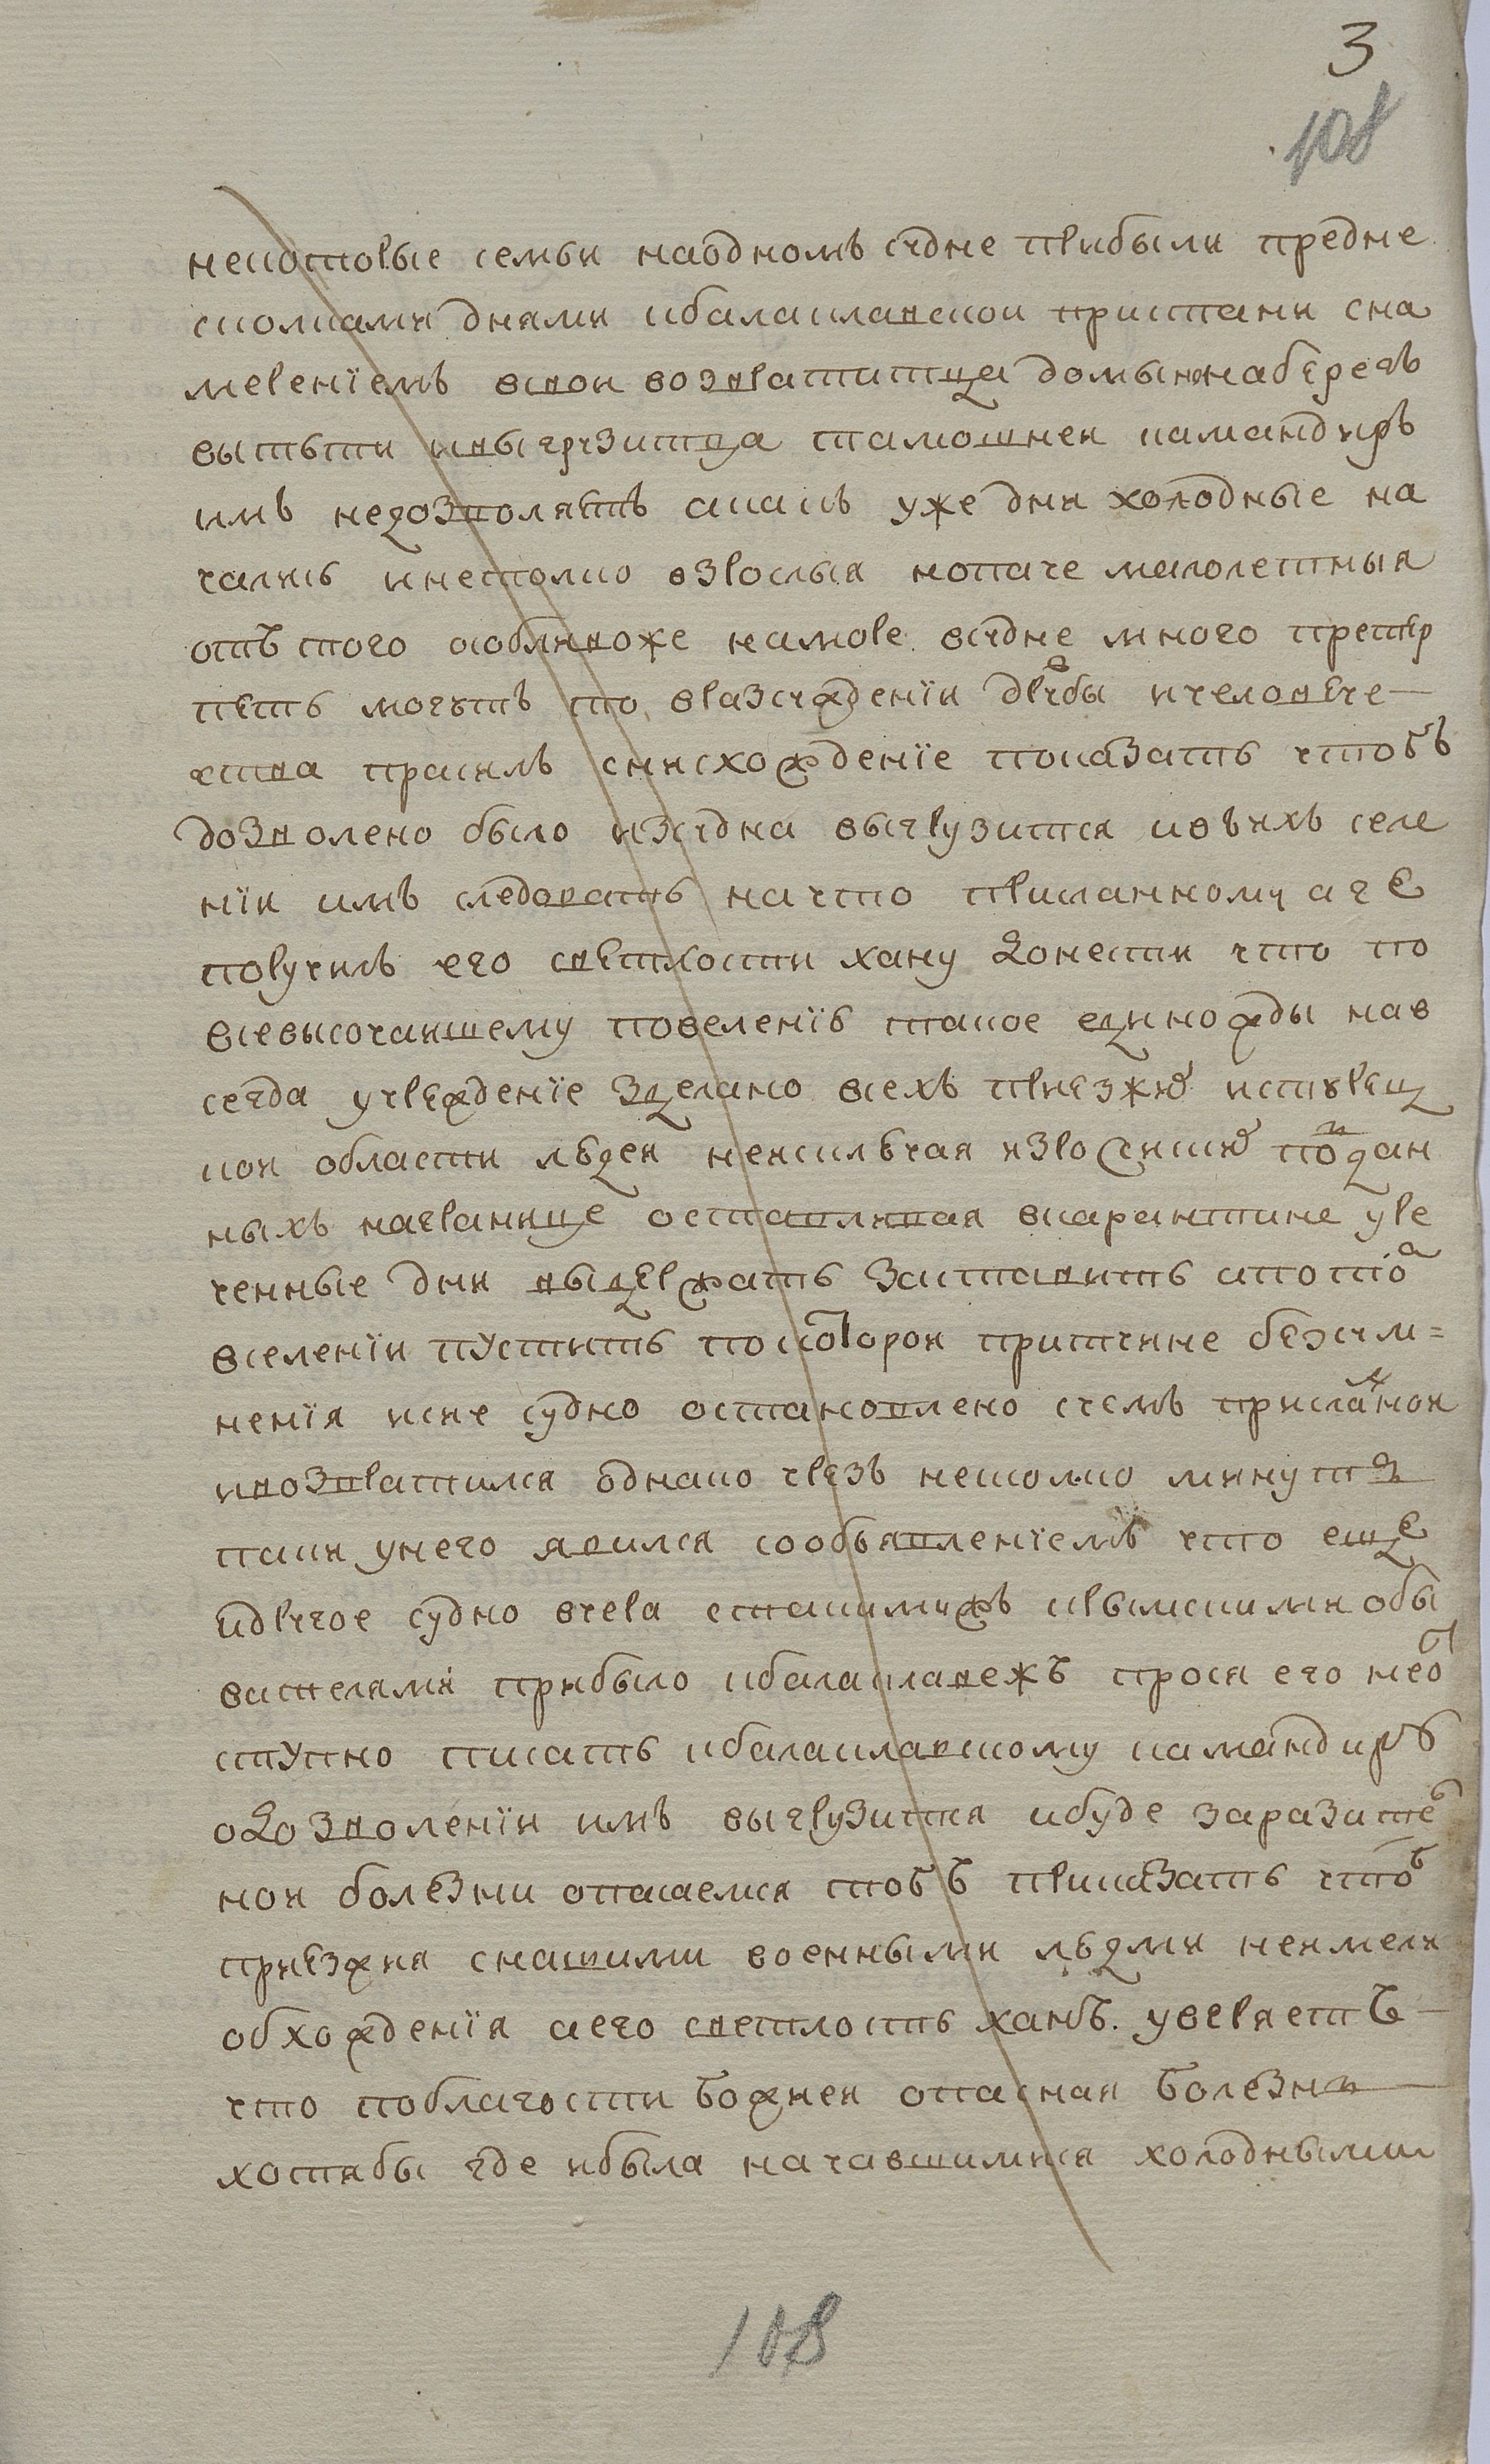 3
108
некоторые семьи наодномъ судне прибыли предне
сколками днями кбалаклавской пристани сна
мерениемъ всвои возвратитца домы инаберегъ
выттьти ивыгрузитца тамошнеи камандиръ
имъ недозволяетъ акакъ уже дни холодные на
чались инестолко взрослыя нопаче малолетныя
отъ того особливоже наморе всудне много претер
петь могутъ то вразсуждении дружбы ичеловече
ства прасилъ снисхождение показать чтобъ
дозволено было изсудна выгрузится ивъихъ селе
нии имъ следовать начто присланному аге
поручилъ его светлости хану донести что по
всевысочаишему повелению такое единожды нав
сегда учреждение зделано всехъ приезжихъ истурец
кои области людеи неисключая изросиискихъ подан
ныхъ награнице оставливая вкарантине уре
ченные дни выдержать заставить апотомъ
вселении пустить покоторои притчине безсум=
нения исие судно остановлено счемъ присланнои
ивозвратился однако чрезъ несколко минутъ
паки унего явился собъявлениемъ что еще
идругое судно вчера стакимижъ крымскими обы
вателями прибыло кбалаклавежъ прося его неот
ступно писать кбалаклавскому камандиру
одозволении имъ выгрузится ибуде заразитель
нои болезни опасаемся тобъ приказать чтобъ
приезжия снашими военными людми неимели
обхождения аего светлость ханъ. уверяетъ
что поблагости божиеи опасная болезнь
хотябы где ибыла начавшимися холодными
108